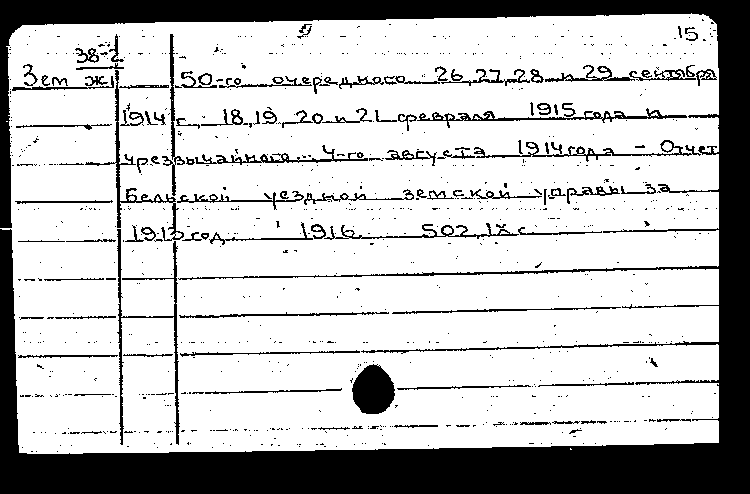 9
15.
38-2
Зем ж1 50-го очередного 26, 27, 28 и 29 сентября
1914 г., 18, 19, 20 и 21 февраля 1915 года и
чрезвычайного... 4-го августа 1914 года - Отчет
Бельской уездной земской управы за
1913 год. 1916. 502, IX с.